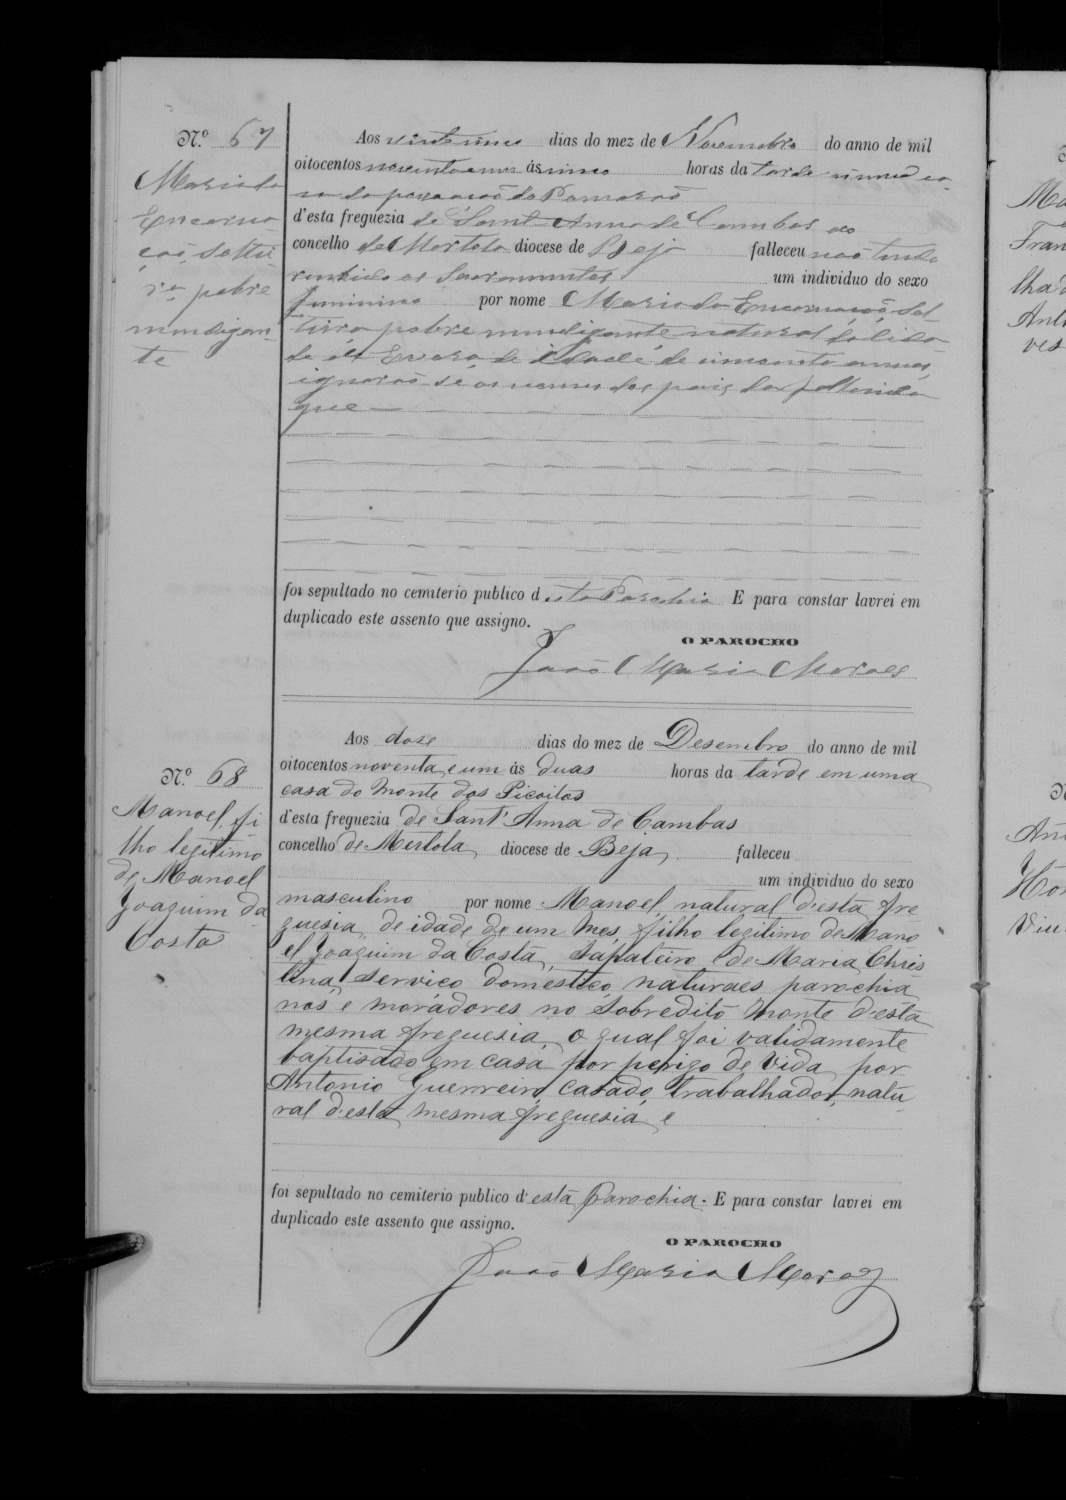 Nº 67
Maria da
Encarna
ção, soltei
rª pobre
mendigan-
te
Aos vinte cinco dias do mez de Novembro do anno de mil
oitocentos noventa e um ás cinco horas da tarde n'uma ca-
sa da povoação do Pomarão
d'esta freguezia de Sant'Anna de Cambas do
concelho de Mertola diocese de Beja falleceu não tendo
recebido os Sacramentos um individuo do sexo
feminino por nome Maria da Encarnação, sol-
teira pobre mendigante natural da Cida-
de de Evora, de idade de cincoenta annos,
ignorão-se os nomes dos pais da fallecida
que
foi sepultado no cemiterio publico d'esta Parochia E para constar lavrei em
duplicado este assento que assigno.
O PAROCHO
João Maria Moraes
Nº 68
Manoel, fi
lho legitimo
de Manoel
Joaquim da
Costa
Aos dose dias do mez de Desembro do anno de mil
oitocentos noventa e um ás duas horas da tarde em uma
casa do Monte dos Picoitos
d'esta freguezia de Sant'Anna de Cambas
concelho de Mertola, diocese de Beja, falleceu
um individuo do sexo
masculino por nome Manoel, natural d'esta fre
guesia, de idade de um mes, filho legitimo de Mano
el Joaquim da Costa, sapateiro e de Maria Chris
tina, serviço domestico, naturaes parochia
nos e moradores no sobredito Monte d'esta
mesma freguesia, o qual foi validamente
baptisado em casa por perigo de vida por
Antonio Guerreiro, casado, trabalhador, natu
ral d'esta mesma freguesia, e
foi sepultado no cemiterio publico d'esta Parochia. E para constar lavrei em
duplicado este assento que assigno.
O PAROCHO
João Maria Moraes